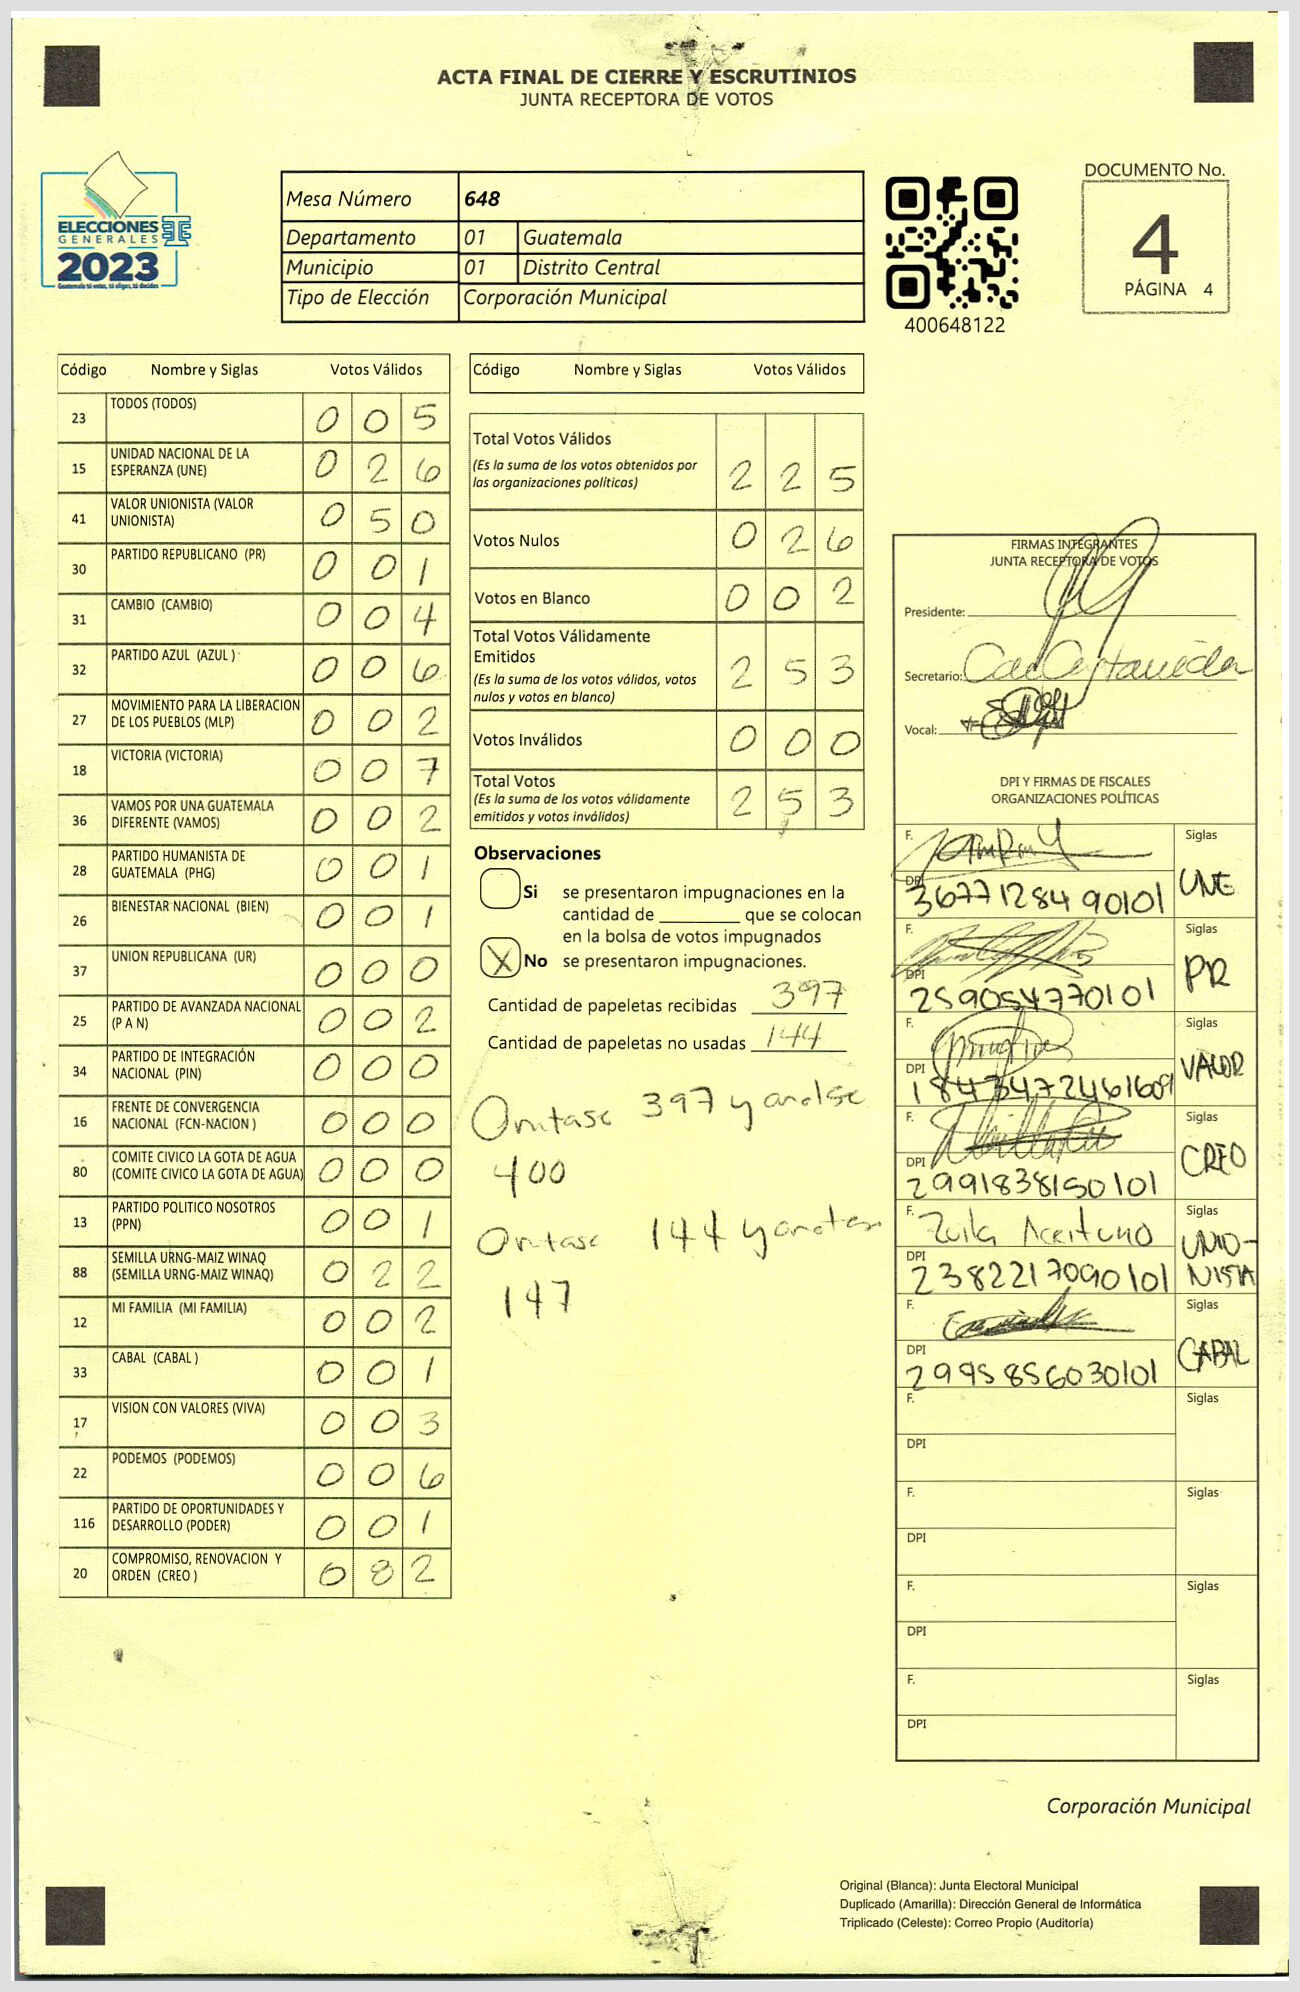 ACTA FINAL DE CIERRE Y ESCRUTINIOS
JUNTA RECEPTORA DE VOTOS
ELECCIONES
GENERALES
2023
Guatemala tú votas, tú eliges, tú decides
Mesa Número 648
Departamento 01 Guatemala
Municipio 01 Distrito Central
Tipo de Elección Corporación Municipal
400648122
DOCUMENTO No.
4
PÁGINA 4
Código Nombre y Siglas Votos Válidos
23 TODOS (TODOS) 0 0 5
15 UNIDAD NACIONAL DE LA ESPERANZA (UNE) 0 2 6
41 VALOR UNIONISTA (VALOR UNIONISTA) 0 5 0
30 PARTIDO REPUBLICANO (PR) 0 0 1
31 CAMBIO (CAMBIO) 0 0 4
32 PARTIDO AZUL (AZUL ) 0 0 6
27 MOVIMIENTO PARA LA LIBERACION DE LOS PUEBLOS (MLP) 0 0 2
18 VICTORIA (VICTORIA) 0 0 7
36 VAMOS POR UNA GUATEMALA DIFERENTE (VAMOS) 0 0 2
28 PARTIDO HUMANISTA DE GUATEMALA (PHG) 0 0 1
26 BIENESTAR NACIONAL (BIEN) 0 0 1
37 UNION REPUBLICANA (UR) 0 0 0
25 PARTIDO DE AVANZADA NACIONAL (P A N) 0 0 2
34 PARTIDO DE INTEGRACIÓN NACIONAL (PIN) 0 0 0
16 FRENTE DE CONVERGENCIA NACIONAL (FCN-NACION ) 0 0 0
80 COMITE CIVICO LA GOTA DE AGUA (COMITE CIVICO LA GOTA DE AGUA) 0 0 0
13 PARTIDO POLITICO NOSOTROS (PPN) 0 0 1
88 SEMILLA URNG-MAIZ WINAQ (SEMILLA URNG-MAIZ WINAQ) 0 2 2
12 MI FAMILIA (MI FAMILIA) 0 0 2
33 CABAL (CABAL ) 0 0 1
17 VISION CON VALORES (VIVA) 0 0 3
22 PODEMOS (PODEMOS) 0 0 6
116 PARTIDO DE OPORTUNIDADES Y DESARROLLO (PODER) 0 0 1
20 COMPROMISO, RENOVACION Y ORDEN (CREO ) 0 8 2
Código Nombre y Siglas Votos Válidos
Total Votos Válidos 2 2 5
(Es la suma de los votos obtenidos por
las organizaciones políticas)
Votos Nulos 0 2 6
Votos en Blanco 0 0 2
Total Votos Válidamente
Emitidos 2 5 3
(Es la suma de los votos válidos, votos
nulos y votos en blanco)
Votos Inválidos 0 0 0
Total Votos 2 5 3
(Es la suma de los votos válidamente
emitidos y votos inválidos)
Observaciones
Si se presentaron impugnaciones en la
cantidad de ________ que se colocan
en la bolsa de votos impugnados
X No se presentaron impugnaciones.
Cantidad de papeletas recibidas 397
Cantidad de papeletas no usadas 144
Omitase 397 y anotese
400
Omitase 144 y anotese
147
FIRMAS INTEGRANTES
JUNTA RECEPTORA DE VOTOS
Presidente:
Secretario:
Vocal:
DPI Y FIRMAS DE FISCALES
ORGANIZACIONES POLÍTICAS
F. Siglas
DPI 3677128490101 UNE
F. Siglas
DPI 259054770101 PR
F. Siglas
DPI 1843472461609 VALOR
F. Siglas
DPI 2991838150101 CREO
F. Zoila Aceituno Siglas
DPI 2382217090101 UNIO-NISTA
F. Siglas
DPI 2995856030101 CABAL
F. Siglas
DPI
F. Siglas
DPI
F. Siglas
DPI
F. Siglas
DPI
Corporación Municipal
Original (Blanca): Junta Electoral Municipal
Duplicado (Amarilla): Dirección General de Informática
Triplicado (Celeste): Correo Propio (Auditoría)